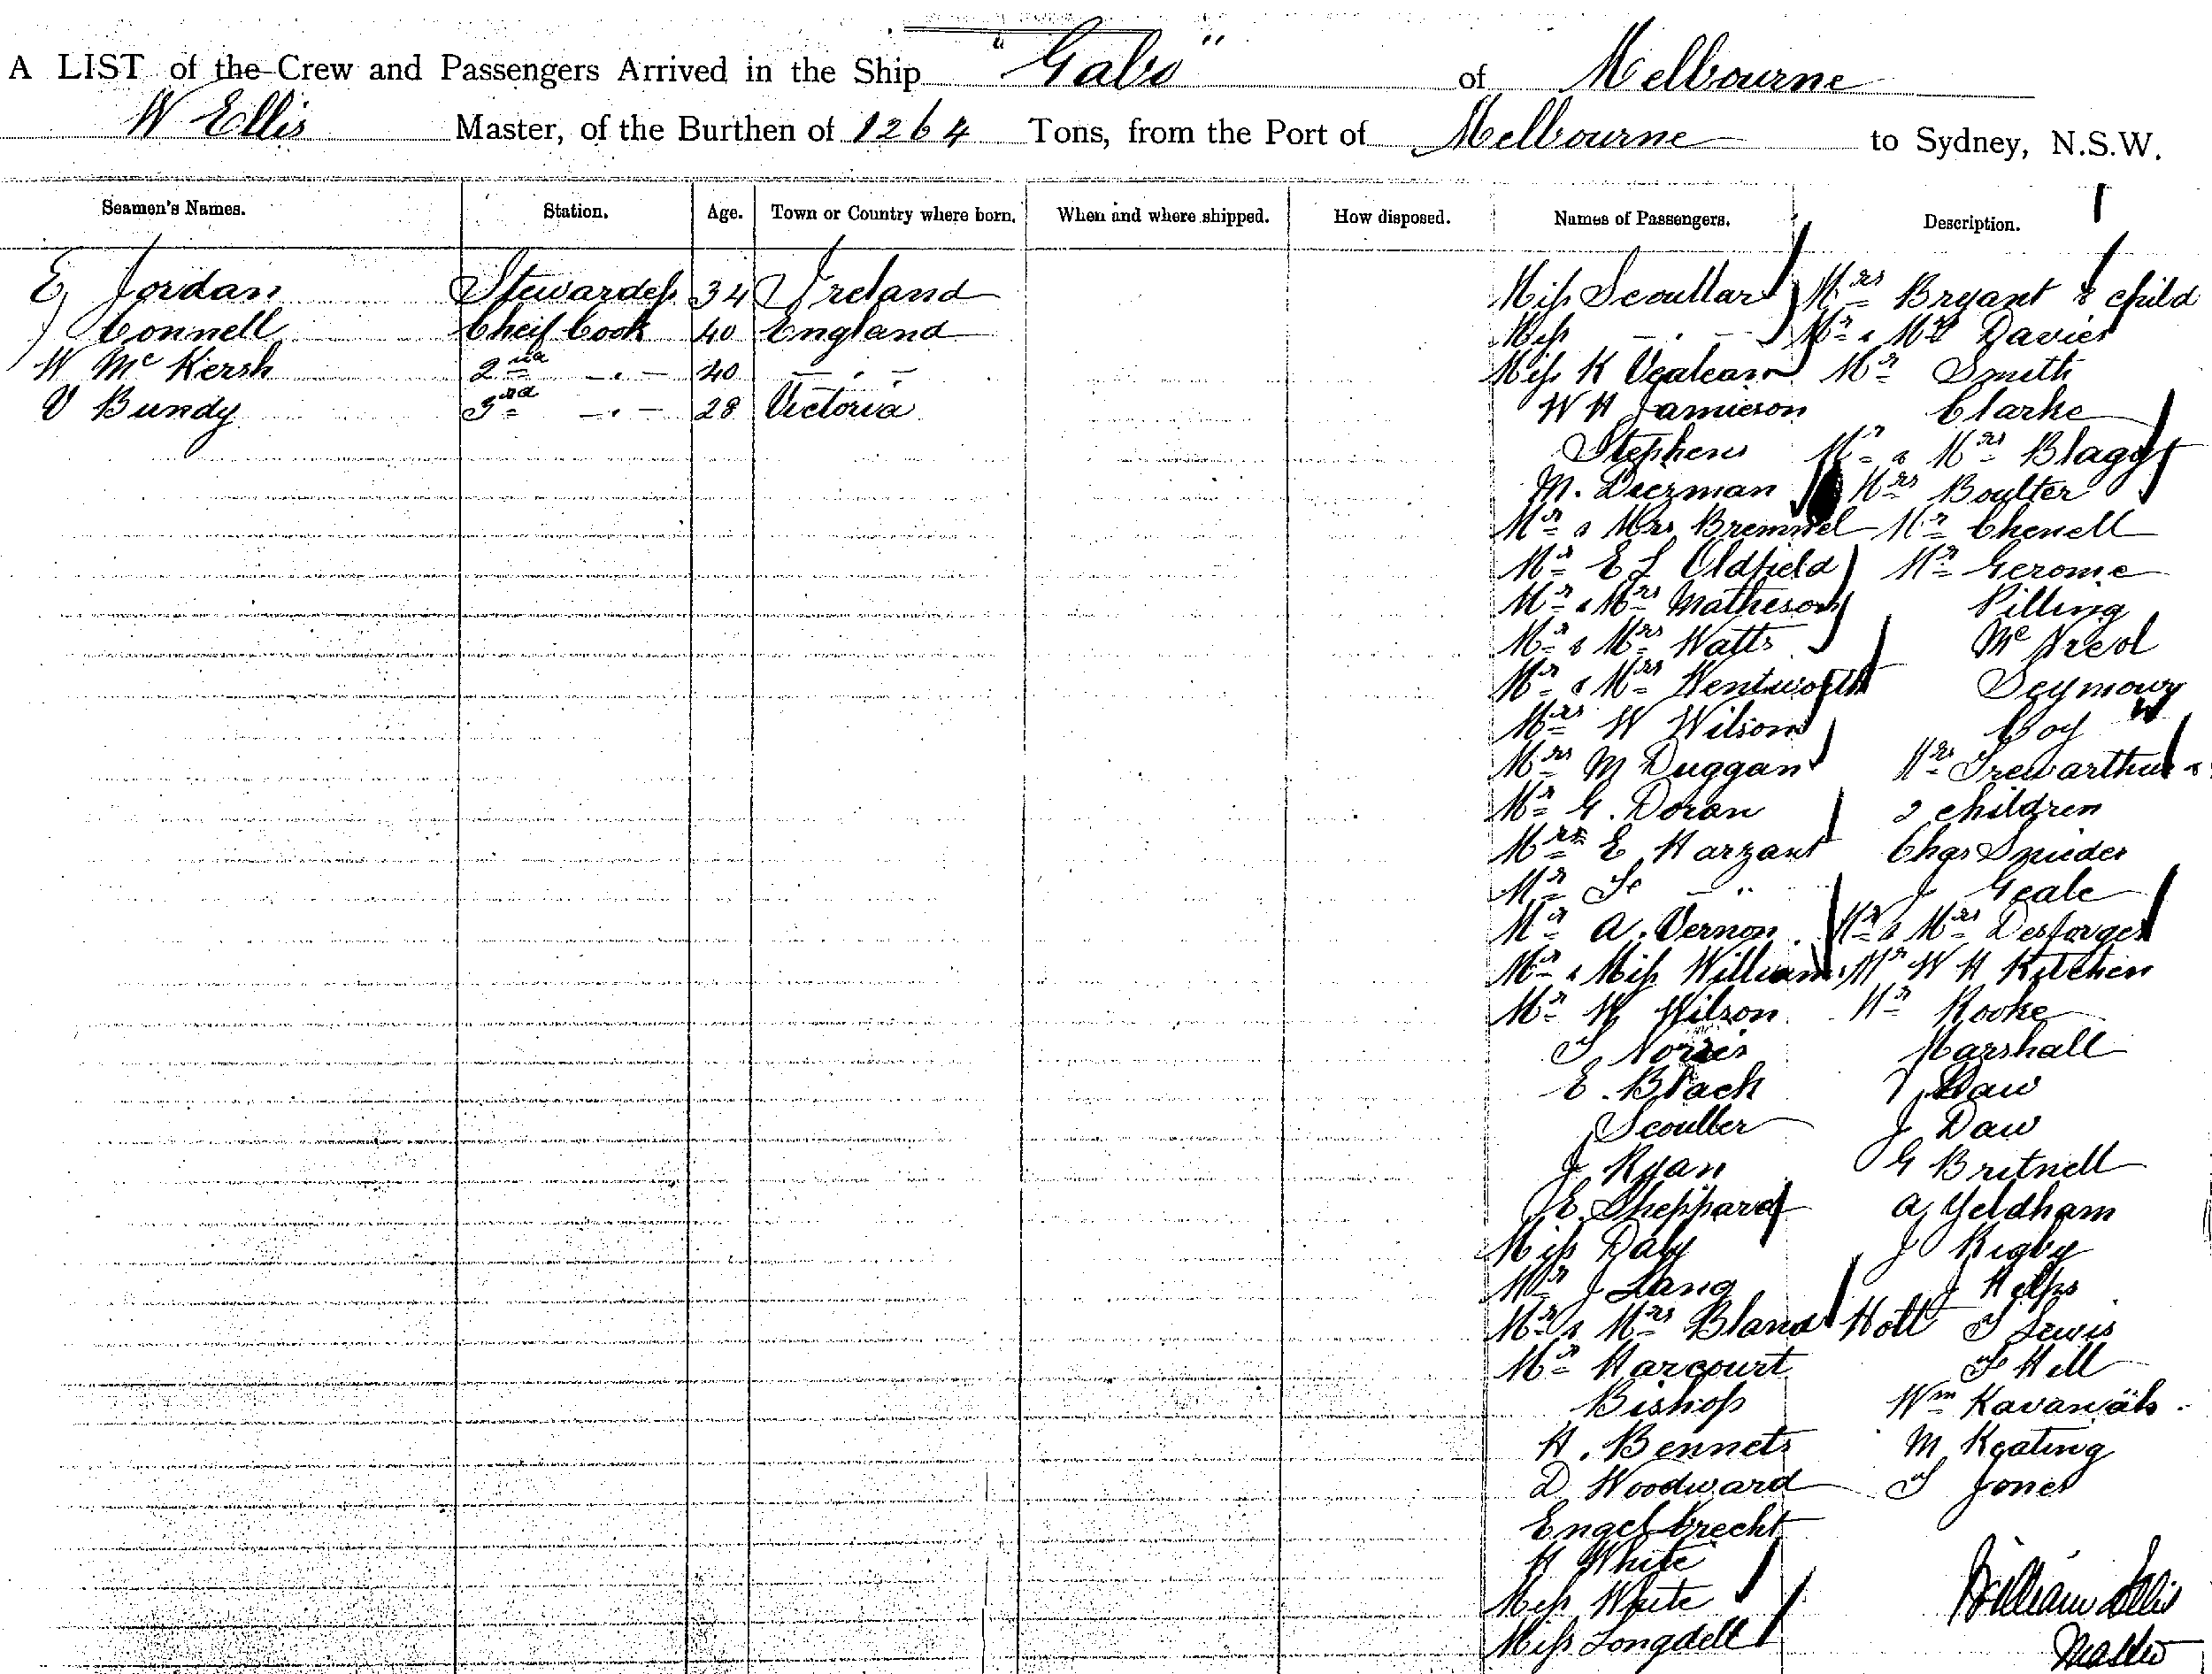 A LIST of the Crew and Passengers Arrived in the Ship "Gabo" of Melbourne
W Ellis Master, of the Burthen of 1264 Tons, from the Port of Melbourne to Sydney, N.S.W.
Seamen's Names. Station. Age. Town or Country where born. When and where shipped. How disposed. Names of Passengers. Description.
E Jordan Stewardess 34 Ireland Miss Scoullar Mrs Bryant & child
J Connell Cheif Cook 40 England Miss - " - Mr & Mrs Davies
W Mc Kersh 2nd - " - 40 - " - Miss K Mr Smith
V Bundy 3rd - " - 28 Victoria W H Jamieson Clarke
Stephens Mr & Mrs Blagg
M. Diezman Mrs Boulter
Mr & Mrs Bremmel Mr Chenell
Mr E L Oldfield Mr Gerome
Mr & Mrs Matheson Pilling
Mr & Mrs Watts
Mr & Mrs Wentworth Seymour
Mrs W Wilson Coy
Mrs M Duggan Mrs Trewarthur &
Mr G. Doran 2 children
Mrs E Harzant Chas Snieder
Mr - " J Geale
Mr A. Vernon Mr & Mrs Desforges
Mr & Miss Williams Mr W H Kitchen
Mr W Wilson Mr Rooke
T Norris Marshall
E. Black Daw
Scouller J Daw
J Ryan G Britnell
E. Sheppard A Yeldham
Miss Daly J Rigby
Mr J Lang J Helps
Mr & Mrs Bland Holt T Lewis
Mr Harcourt Hill
Bishop Wm Kavanah
H. Bennets M Keating
D Woodward T Jones
Engelbrecht
H White
Miss White William Ellis
Miss Longdell Master